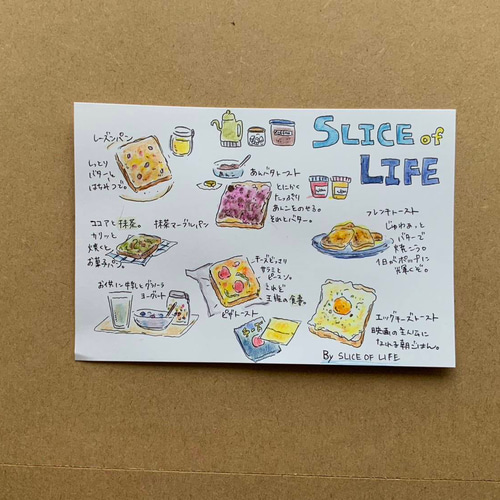 SLICE of
LIFE
レーズンパン
しっとり
バター&
はちみつで。
あんバタトースト
とにかく
たっぷり
あんこをのせる。
そのとバター。
ココアと抹茶。
カリッと
焼くと
お菓子パン。
抹茶マーブルパン
フレンチトースト
じゅわぁっと
バターで
焼こう。
1日がポップに
輝くぞ。
お供に牛乳とグラノーラ
ヨーグルト
チーズどっさり
サラミと
ピーマン。
これぞ
王様の食事。
ピザトースト
エッグチーズトースト
映画の主人公に
なれる朝ごはん。
By SLICE OF LIFE